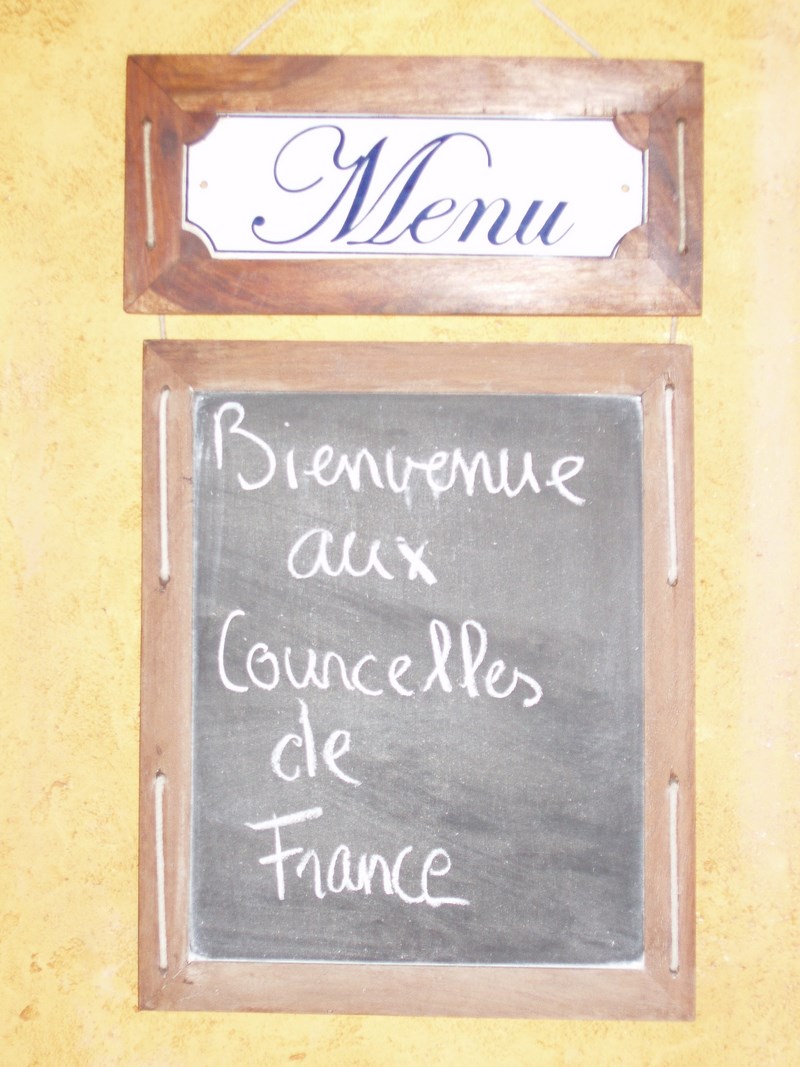 Menu
Bienvenue
aux
Courcelles
de
France